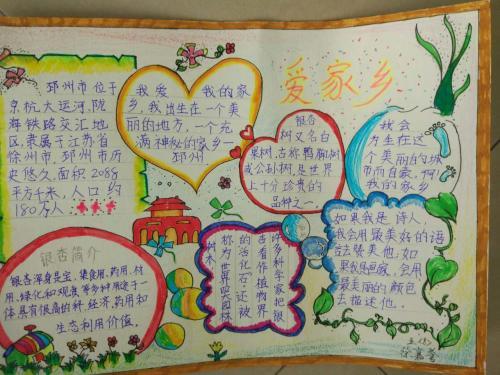 爱家乡
邳州市位于
京杭大运河、陇
海铁路交汇地
区,隶属于江苏省
徐州市,邳州市历
史悠久面积2088
平方千米,人口约
180万人。
我爱我的家
乡,我出生在一个美
丽的地方,一个充
满神秘的家乡
邳州
银杏
树又名白
果树,古称鸭脚树
或公孙树,是世界
上十分珍贵的
品种之一。
我会
为生在这
个美丽的城
市而自豪,啊!
我的家乡
银杏简介
银杏浑身是宝,集食用、药用、材
用、绿化和观赏等多种用途于一
体具有很高的科经济、药用和
生态利用价值。
许多科学家把银
杏看作植物界
的活化石,还被
称为世界四大园林
树木
如果我是诗人,
我会用最美好的语
言赞美他;如
果我是画家,会用
最美丽的颜色
去描述他。
五(8)